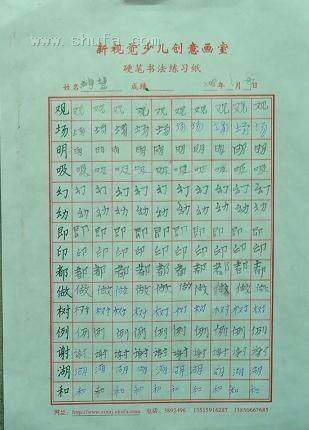 www.shufa.com
新视觉少儿创意画室
硬笔书法练习纸
姓名 成绩 年 月 日
观 观 观 观 观 观 观 观 观
场 场 场 场 场 场 场 场 场
明 明 明 明 明 明 明 明 明
吸 吸 吸 吸 吸 吸 吸 吸 吸
幻 幻 幻 幻 幻 幻 幻 幻 幻
幼 幼 幼 幼 幼 幼 幼 幼 幼
即 即 即 即 即 即 即 即 即
印 印 印 印 印 印 印 印 印
都 都 都 都 都 都 都 都 都
做 做 做 做 做 做 做 做 做
树 树 树 树 树 树 树 树 树
例 例 例 例 例 例 例 例 例
谢 谢 谢 谢 谢 谢 谢 谢 谢
湖 湖 湖 湖 湖 湖 湖 湖 湖
和 和 和 和 和 和 和 和 和
电话: 3893496 13515916287 13850667685